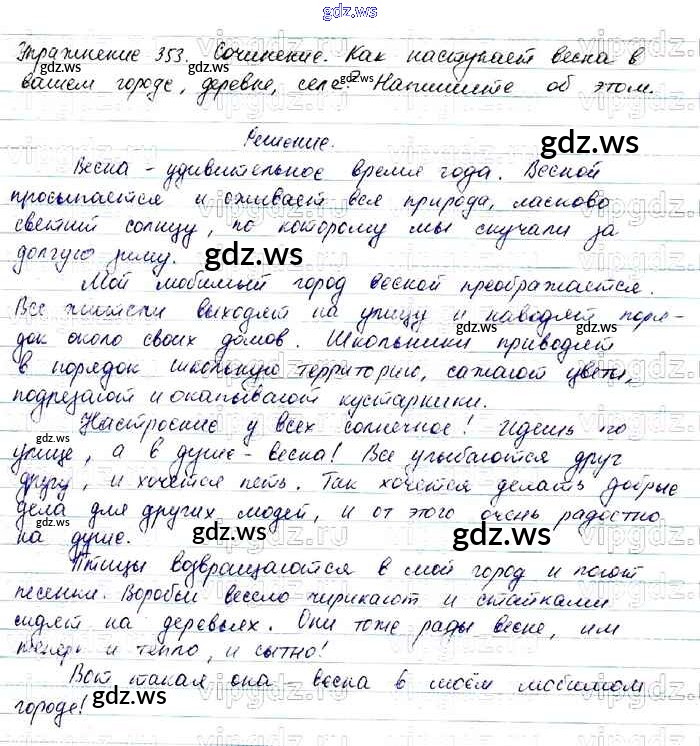 gdz.ws
Упражнение 353. Сочинение. Как наступает весна в
вашем городе, деревне, селе? Напишите об этом.
Решение.
gdz.ws
Весна - удивительное время года. Весной
просыпается и оживает вся природа, ласково
светит солнцу, по которому мы скучали за
долгую зиму.
gdz.ws
Мой любимый город весной преображается.
Все жители выходят на улицу и наводят поря-
gdz.ws
док около своих домов. Школьники приводят
в порядок школьную территорию, сажают цветы,
подрезают и окапывают кустарники.
Настроение у всех солнечное! Идешь по
gdz.ws
улице, а в душе - весна! Все улыбаются друг
gdz.ws
другу, и хочется петь. Так хочется делать добрые
дела для других людей, и от этого очень радостно
gdz.ws
на душе.
gdz.ws
Птицы возвращаются в мой город и поют
песенки. Воробьи весело чирикают и стайками
сидят на деревьях. Они тоже рады весне, им
теперь и тепло, и сытно!
gdz.ws
gdz.ws
Вот такая она весна в моём любимом
городе!
gdz.ws